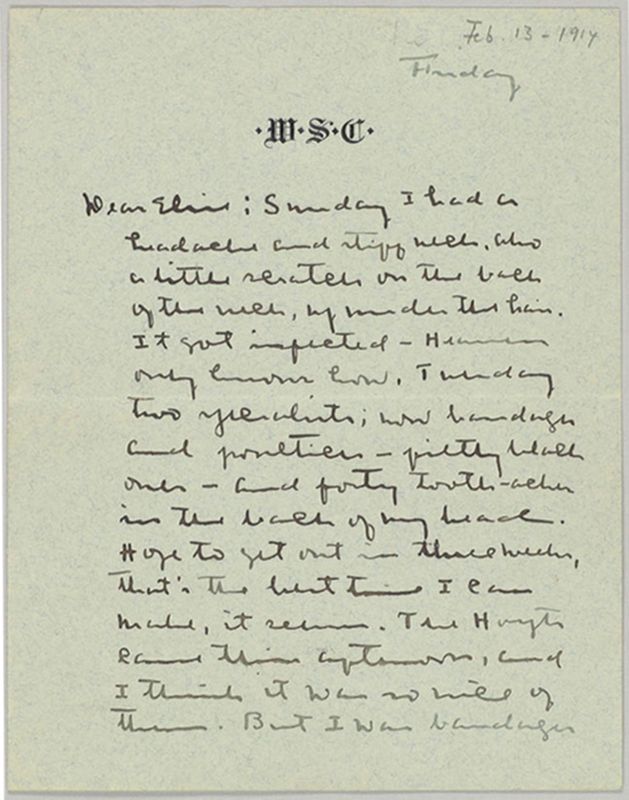 Feb. 13 - 1914
Tuesday
·W·S·C·
Dear Elsie: Sunday I had a
headache and stiff neck, also
a little scratch on the back
of the neck, up under the hair.
It got infected - Heaven
only knows how. Tuesday
two specialists; now bandages
and poultices - filthy black
ones - and forty tooth-aches
in the back of my head.
Hope to get out in three weeks,
that's the best time I can
make, it seems. The Hoyts
came this afternoon, and
I think it was so nice of
them. But I was bandages